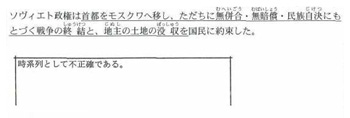 ソヴィエト政権は首都をモスクワへ移し、ただちに無併合・無賠償・民族自決にも
とづく戦争の終結と、地主の土地の没収を国民に約束した。
時系列として不正確である。